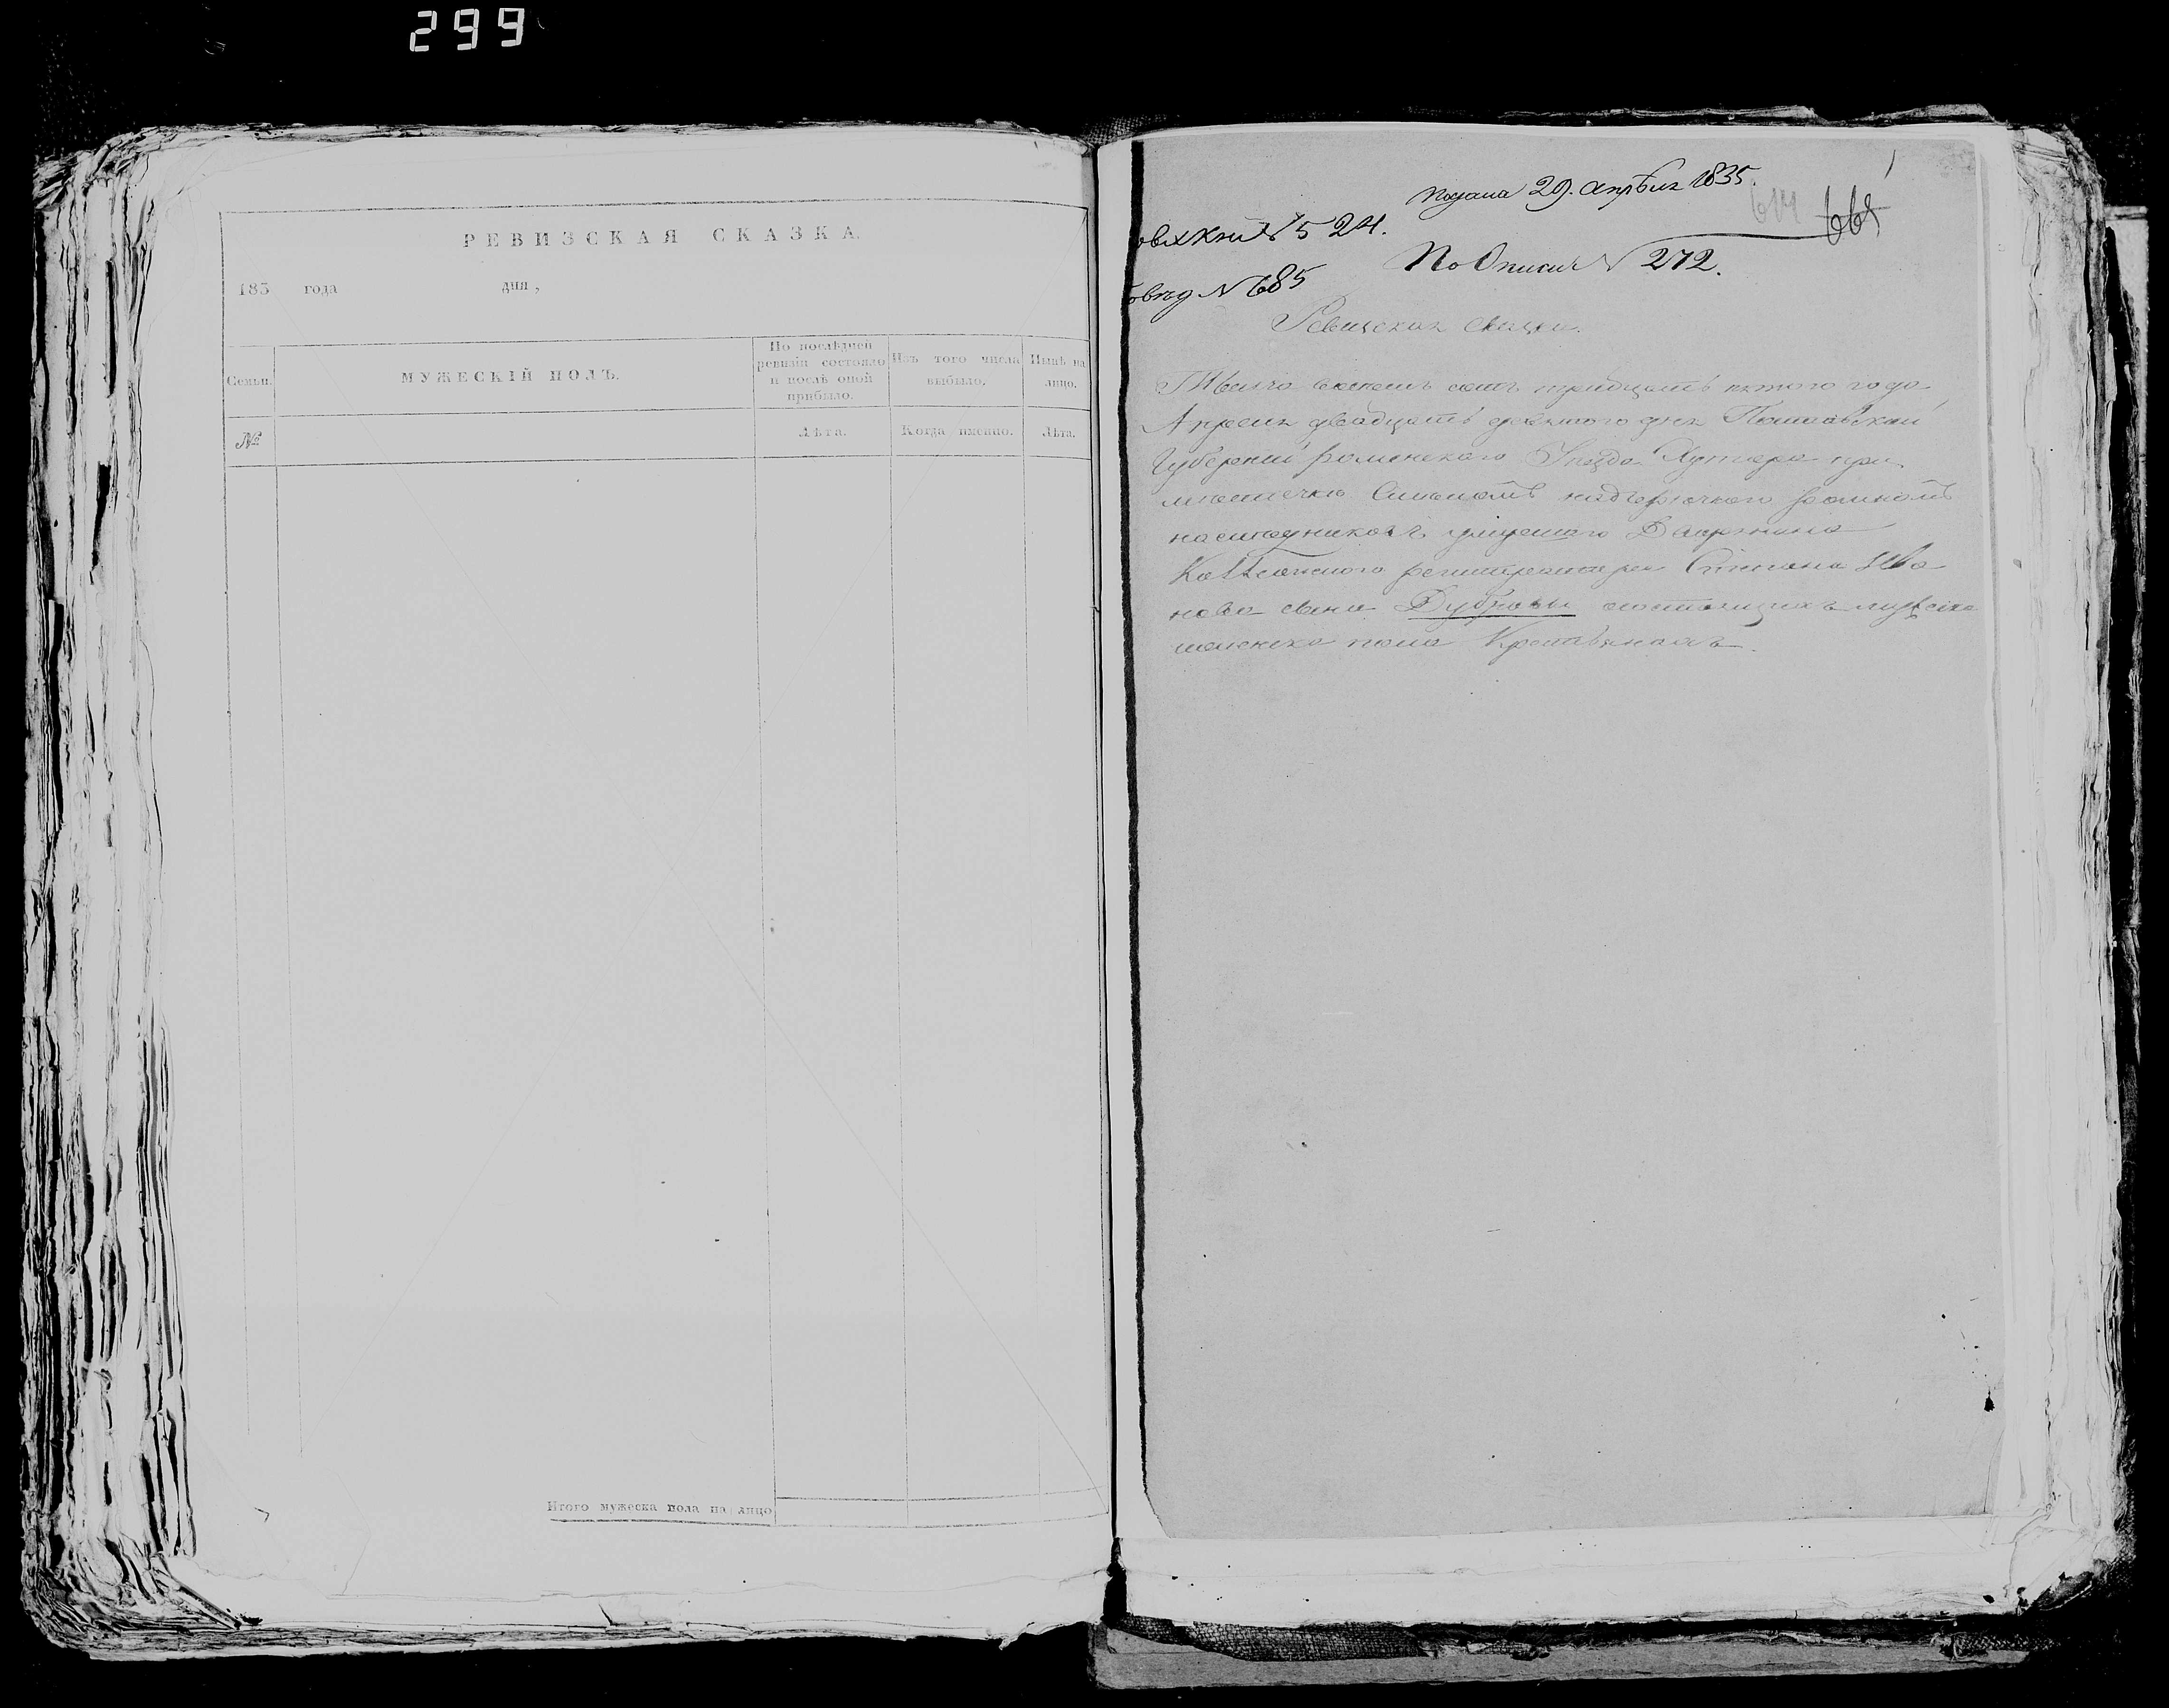 299
РЕВИЗСКАЯ СКАЗКА.
183 года дня,
Семьи.
МУЖЕСКІЙ ПОЛЪ.
По послѣдней ревизіи состояло и послѣ оной прибыло.
Изъ того числа выбыло.
Нынѣ на лицо.
№
Лѣта.
Когда именно.
Лѣта.
Итого мужеска пола на лицо
подана 29. апрѣля 1835.
614 665
№ 524.
По Описи № 272.
№ 685
Ревизская сказка.
Тысяча восемь сотъ тридцать пятого года
Апреля двадцать девятого дня Полтавской
Губерніи роменского Уезда Хутора при
местечке
наследниковъ умершаго
регистратора Ива
нова сына Дубровы состоящихъ мужска
женска пола Крестьянахъ.